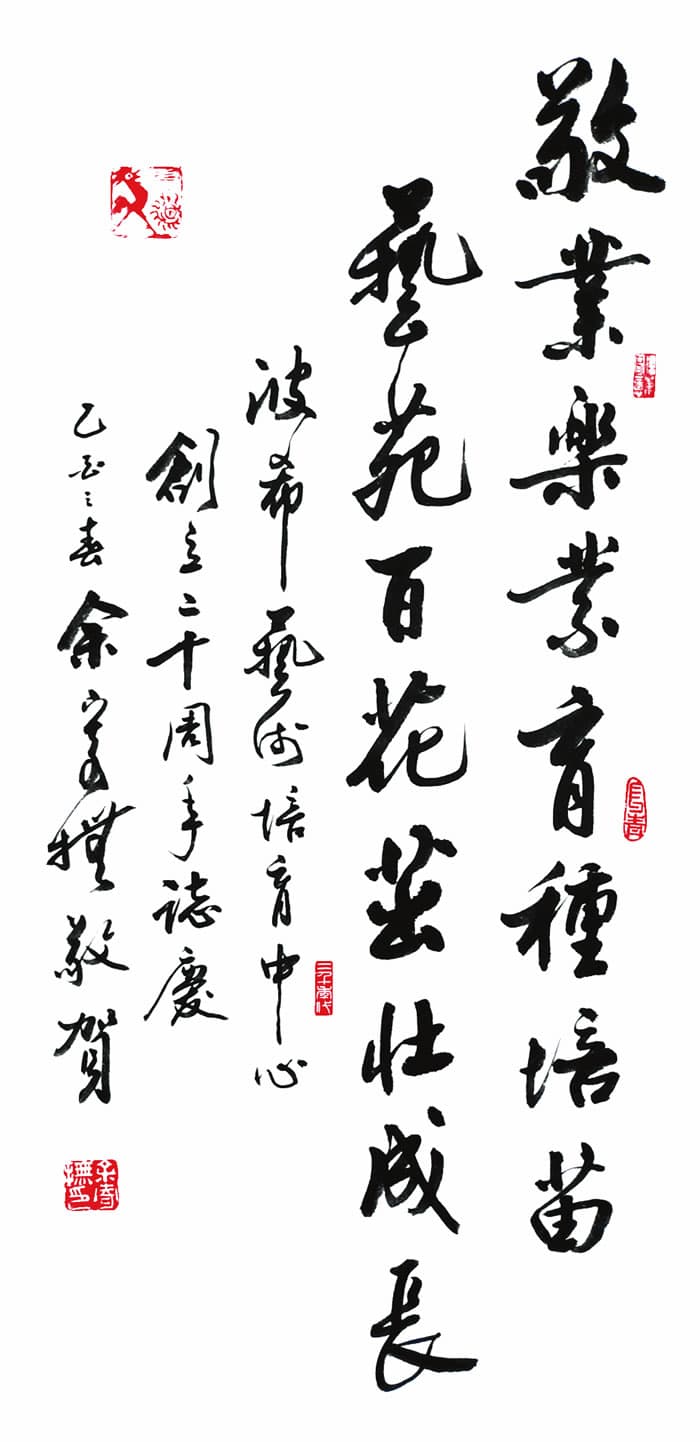 敬業楽業育種培苗
藝苑百花茁壯成長
波希藝術培育中心
三十年代
創立二十周年誌慶
乙酉之春余寄撫敬賀